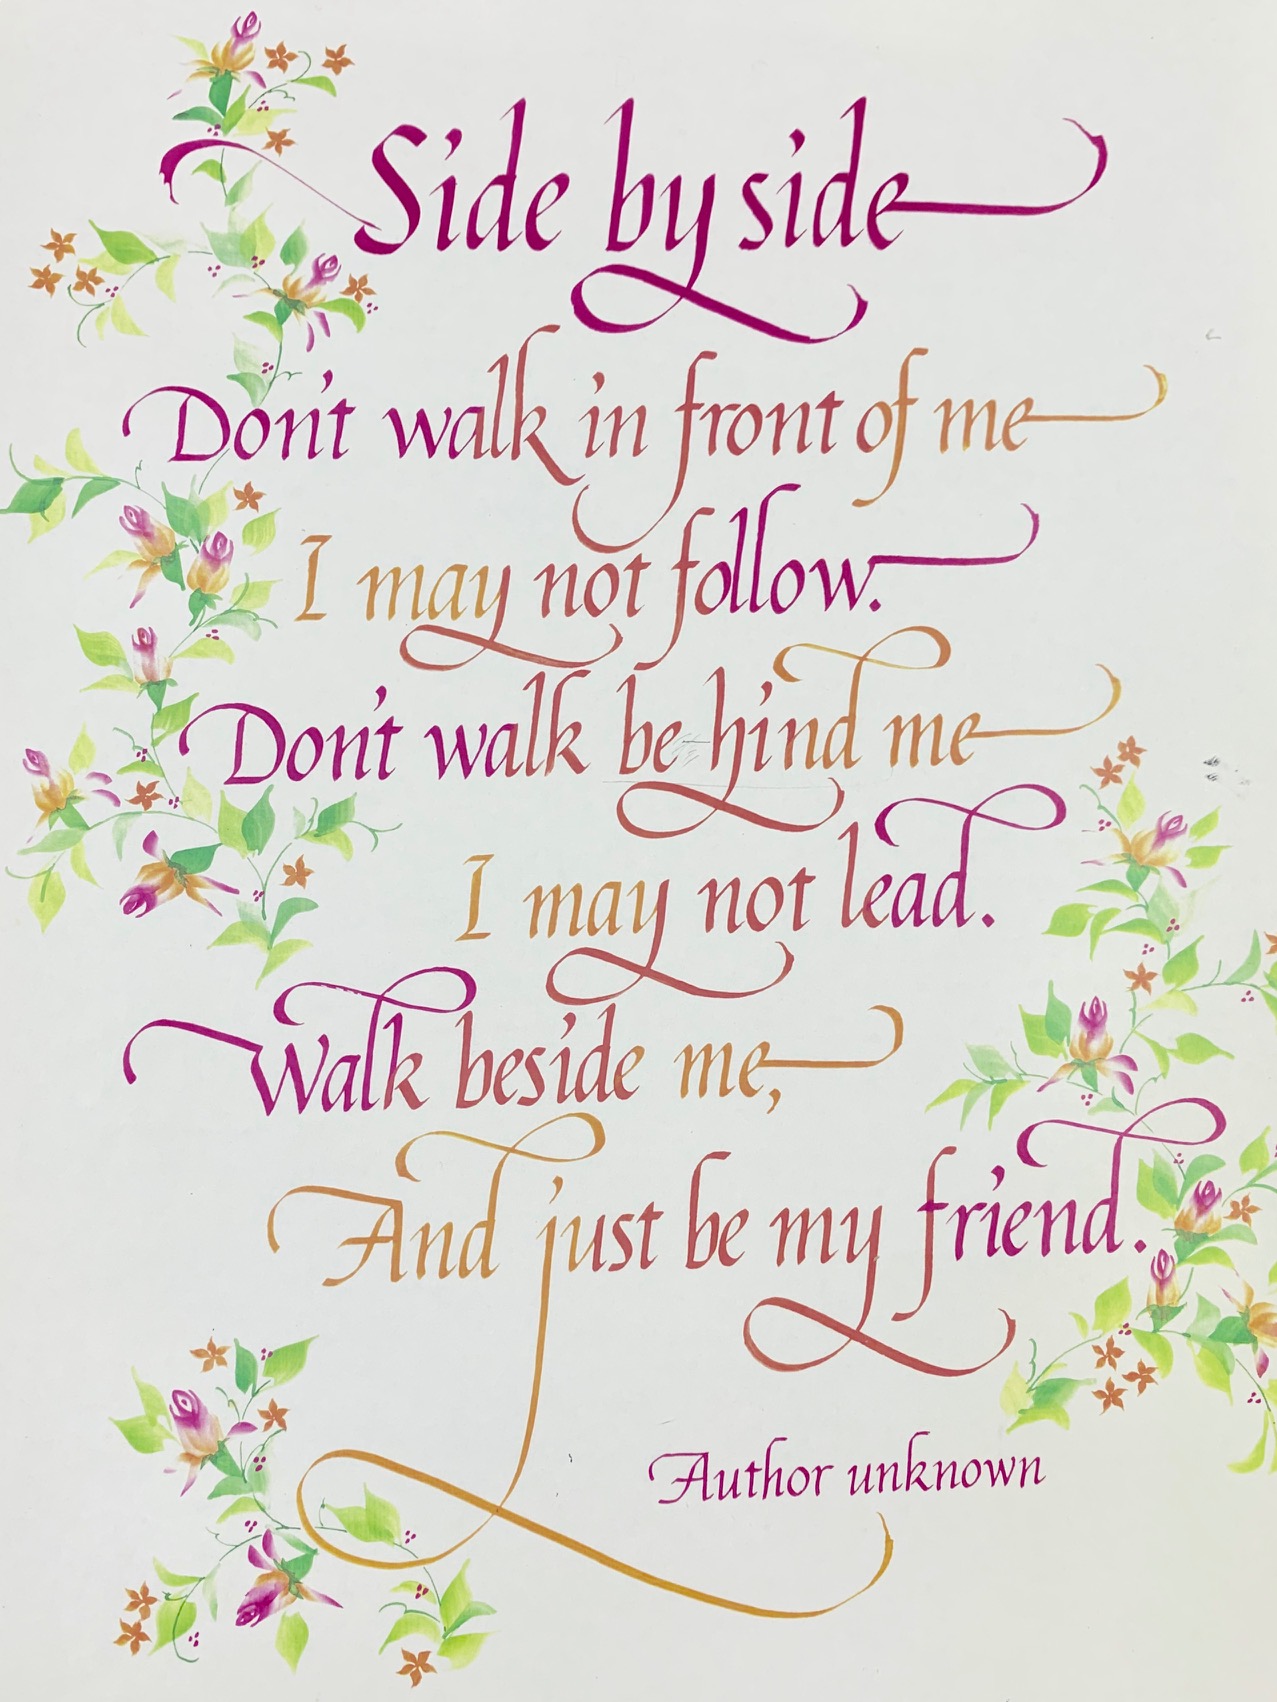 Side by side
Don't walk in front of me
I may not follow.
Don't walk behind me
I may not lead.
Walk beside me,
And just be my friend.
Author unknown